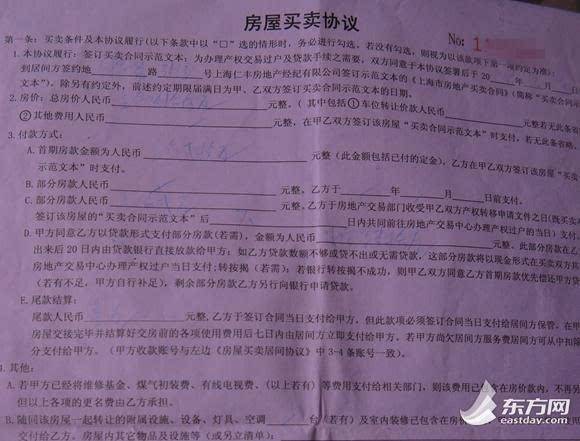 房屋买卖协议
No: 1
第一条:买卖条件及本协议履行(以下条款中以“□”选的情形时,务必进行勾选,若没有勾选,则视为以该款项下第一项约定为准):
1. 本协议履行:签订买卖示范文本:为办理产权交易过户及贷款手续之需要,双方同意于本协议签署后于 20 年 月 日
到居间方签约地 路 号上海仁丰房地产经纪有限公司签订示范文本的《上海市房地产买卖合同》(简称“买卖合同示
文本”),除另有约定外,前述约定期限届满日为甲、乙双方签订买卖合同示范文本的日期。
2. 房价:总房价人民币 元整,(其中包括①车位转让价款人民币 元整若无此备
②其他费用人民币 元整,在甲乙双方签订该房屋“买卖合同示范文本”时支付,若无此备
3. 付款方式:
A. 首期房款金额为人民币 元整(此金额包括已付的定金),乙方在甲乙双方签订该房屋“买
示范文本”时支付。
B. 部分房款人民币 元整,乙方于 年 月 日前支付。
C. 部分房款人民币 元整,乙方于房地产交易部门收受甲乙双方产权转移申请文件之日(既买
签订该房屋的“买卖合同示范文本”后 日内共同前往房地产交易中心办理产权过户的当日)支付。
D. 甲方同意乙方以贷款形式支付部分房款(若需),金额为人民币 元整。此部分房款在乙
出来后 20 日内由贷款银行直接放款给甲方;如乙方贷款数额不够或贷不出或无需贷,这部分房款将以现金形式在买卖双方共
房地产交易中心办理产权过户当日支付;转按揭(若需):若银行转按揭不成功,则甲乙双方同意乙方首期房款优先偿还甲方贷
(若有不足,甲方自行补足),剩余部分房款乙方另行向银行申请贷款。
E. 尾款结算:
尾款人民币 元整,乙方于签订合同当日支付给甲方,但此款项必须签订合同当日支付给居间方保管。在甲
房屋交接完毕并结算好交房前的各项使用费用后七日内由居间方立即支付给甲方。若甲方尚欠居间方服务费居间方可从中扣除
分支付给甲方。(甲方收款账号与左边《房屋买卖居间协议》中 3-4 条账号一致)。
其他:
A. 若甲方已经将维修基金、煤气初装费、有线电视费、(以上若有)等费用支付给相关部门,则该费用已包含在房价款内,不再另
但以上各项的更名费由乙方承担。
B. 随同该房屋一起转让的附属设施、设备、灯具、空调 台(若有)及室内装修已包含在房价
交付给乙方。房屋内其它物品及设施等(或另立清单):
东方网
eastday.com